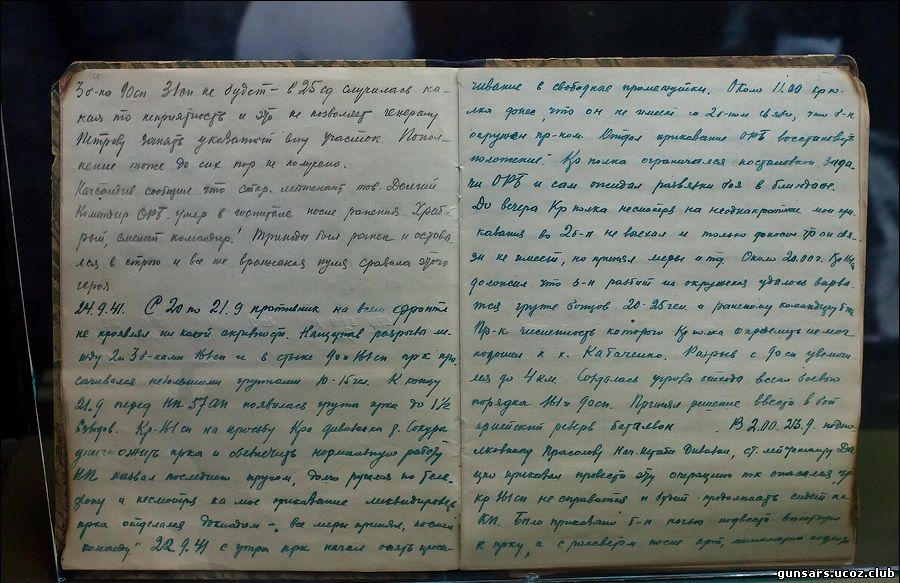 3 б-на 90сп 31сп не будет – в 25 сд случилась ка-
кая то неприятность и это не позволяет генералу
Петрову занять указанный ему участок. Попол-
нение тоже до сих пор не получено.
сообщил что стар. лейтенант тов. Долгий
Командир ОРБ. умер в госпитале после ранения. Храб-
рый, смелый командир! Трижды был ранен и оставал-
ся в строю и все же вражеская пуля сразила этого
героя.
24.9.41. С 20 по 21.9 противник на всем фронте
не проявлял ни какой активности. Нащупав разрывы ме-
жду 2 и 3 б-ками 161сп и в стыке 90 и 161сп пр-к про-
сачивался небольшими группами 10-15 чел. К концу
21.9 перед НП 57АП появилась группа пр-ка до 1½
взводов. Кр-161сп на просьбу
уничтожить пр-ка и обеспечить нормальную работу
НП назвал последнего трусом, долго ругался по теле-
фону и несмотря на мое приказание ликвидировать
пр-ка отделался докладом – "все меры принял, послал
команду" 22.9.41 с утра пр-к начал опять проса-
чивание в свободные промежутки. Около 11.00 кр по-
лка донес, что он не имеет со 2б-ном связи, что б-н
окружен пр-ком. Отдал приказание ОРБ восстановить
положение. Кр полка ограничился постановкой зада-
чи ОРБ и сам ожидал развязки боя в блиндаже.
До вечера Кр полка несмотря на неоднократные мои при-
казания во 2 б-н не выехал и только доносил что он свя-
зи не имеет, но принял меры и тд. Около 20.00 ч. Кр
доложил что б-н разбит из окружения удалось вырва-
ться группе бойцов 20-25 чел. и раненому командиру б-на
Пр-к численность которого Кр полка определить не мог
подошел к х. Кабаченко. Разрыв с 90сп увеличи-
лся до 4 км. Создалась угроза отхода всего боевого
порядка 161 и 90сп. Принял решение ввести в бой
армейский резерв батальон . В 2.00. 23.9. подпо-
лковнику Нач. штаба Дивизии, ст. лейтенанту
приказал провести эту операцию тк оказалось что
кр 161сп не справится и будет продолжать сидеть на
КП. Было приказано б-н ночью подвести
к пр-ку, а с рассветом после арт,
gunsars.ucoz.club